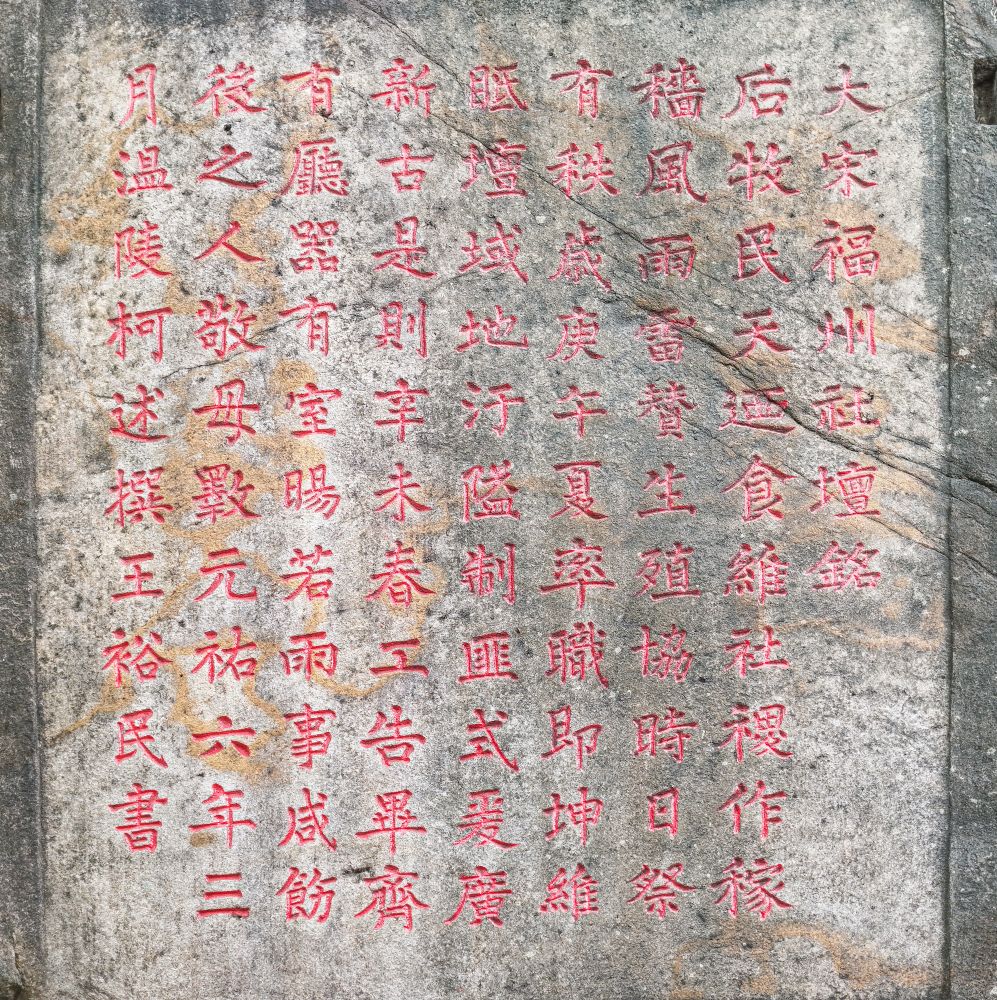 大宋福州社壇銘
后牧民天廼食維社稷作稼
穡風雨雷賛生殖協時日祭
有秩歲庚午夏率職即坤維
眡壇域地汙隘制匪式爰廣
新古是則辛未春工告畢齊
有廳器有室暘若雨事咸飭
後之人敬毋斁元祐六年三
月温陵柯述撰王裕民書